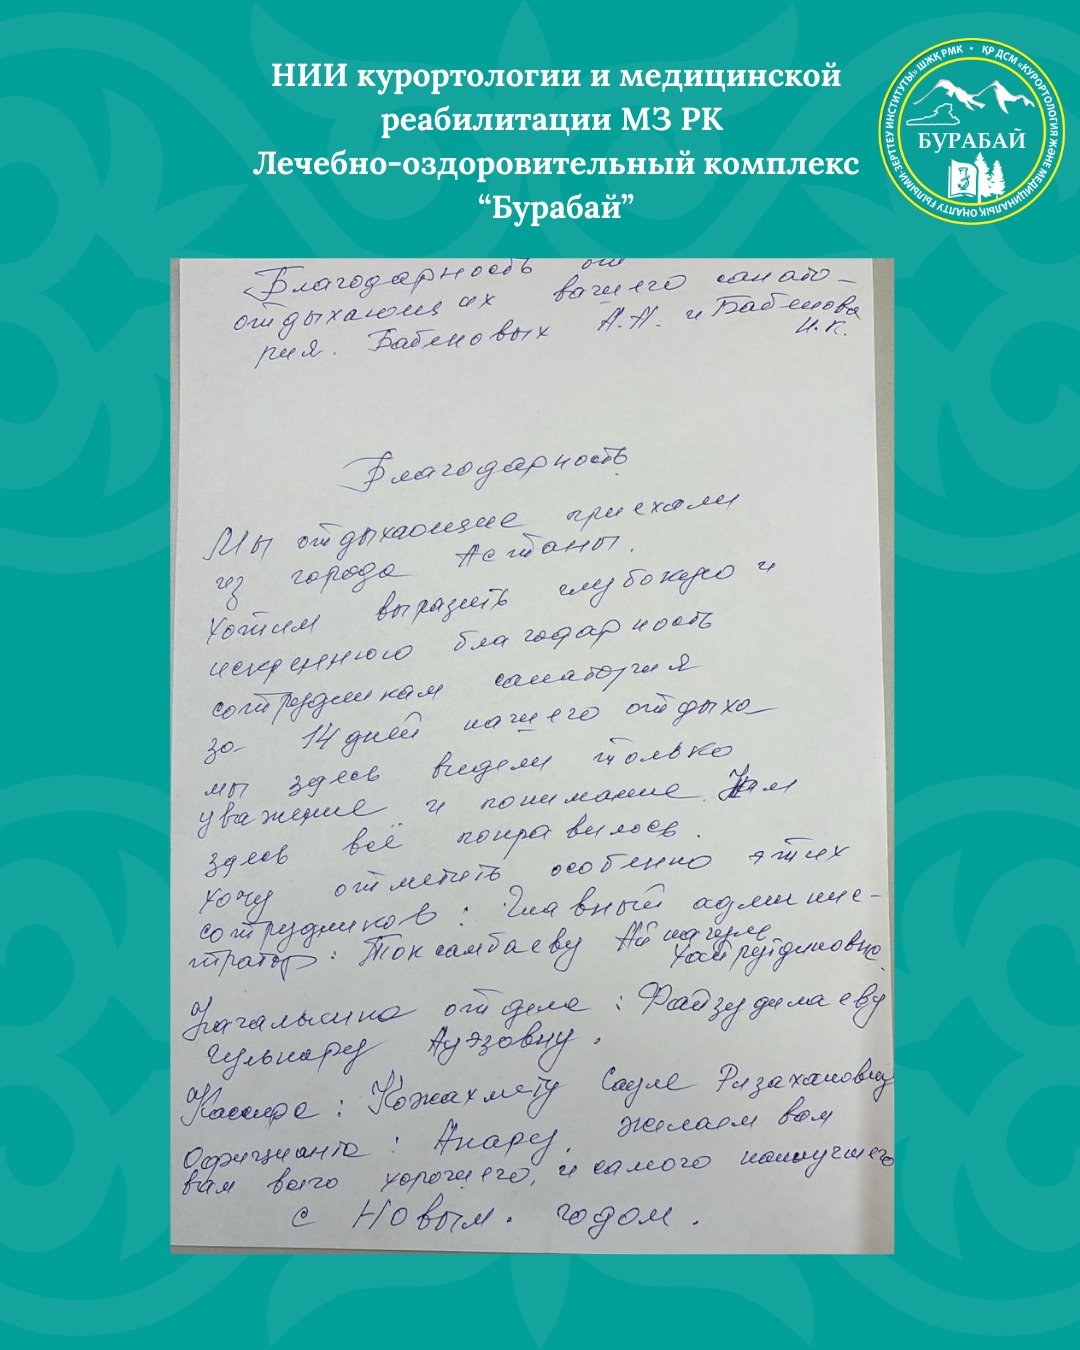 НИИ курортологии и медицинской
реабилитации МЗ РК
Лечебно-оздоровительный комплекс
“Бурабай”
ҚР ДСМ «КУРОРТОЛОГИЯ ЖӘНЕ МЕДИЦИНАЛЫҚ ОҢАЛТУ ҒЫЛЫМИ-ЗЕРТТЕУ ИНСТИТУТЫ» ШЖҚ РМК
БУРАБАЙ
Благодарность от
отдыхающих вашего санато-
рия. Бабеновых А.А. и Бабенова
Н.К.
Благодарность
Мы отдыхающие приехали
из города Астаны.
Хотим выразить глубокую и
искреннюю благодарность
сотрудникам санатория
за 14 дней нашего отдыха
мы здесь видели только
уважение и понимание. Нам
здесь всё понравилось.
Хочу отметить особенно этих
сотрудников: Главный админис-
тратор: Токсамбаеву Айнагуль
Хайрутдиновна.
Начальника отдела: Файзудинаеву
Гульнару Ауэзовну.
Кассира: Кожахмету Сауле Ризахановну
Официанта: Анару. желаем вам
вам всего хорошего, и самого наилучшего
с Новым. годом.